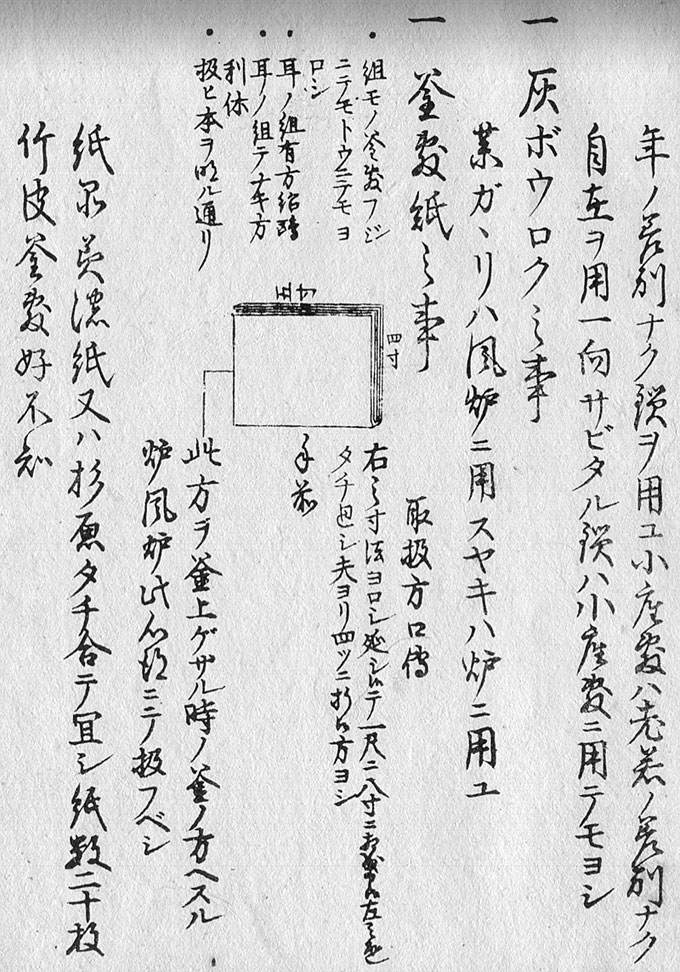 年ノ差別ナク鎖ヲ用ユ小座敷ハ老若ノ差別ナク
自在ヲ用一向サビタル鎖ハ小座敷ニ用テモヨシ
一 灰ボウロクミ事
薬ガヽリハ風炉ニ用スヤキハ炉ニ用ユ
一 釜敷紙ミ事
取扱方口傳
組モノ釜敷フジ
ニテモトウニテモヨ
ロシ
耳ノ組有方結
耳ノ組テナキ方
利休
扱ヒ本ヲ明ル通リ
五寸
四寸
右ミ寸法ヨロシ延シテ一尺ニ八寸ニ
タチ廻シ夫ヨリ四ツニ折方ヨシ
手前
此方ヲ釜上ゲザル時ノ釜ノ方ヘスル
炉風炉此心得ニテ扱フベシ
紙ハ美濃紙又ハ杉原タチ合テ冝シ紙数二十枚
竹皮釜敷好不知